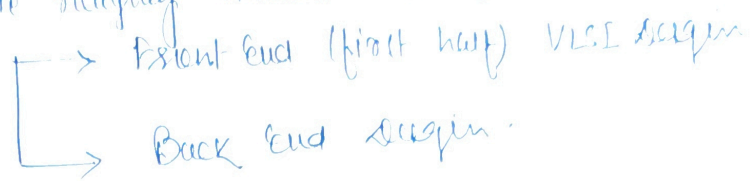 Front End (first half) VLSI Design
Back End Design.